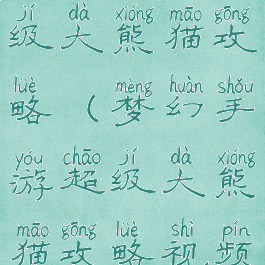 jí dà xióng māo gōng
级大熊猫攻
lüè mèng huàn shǒu
略（梦幻手
yóu chāo jí dà xióng
游超级大熊
māo gōng lüè shì pín
猫攻略视频